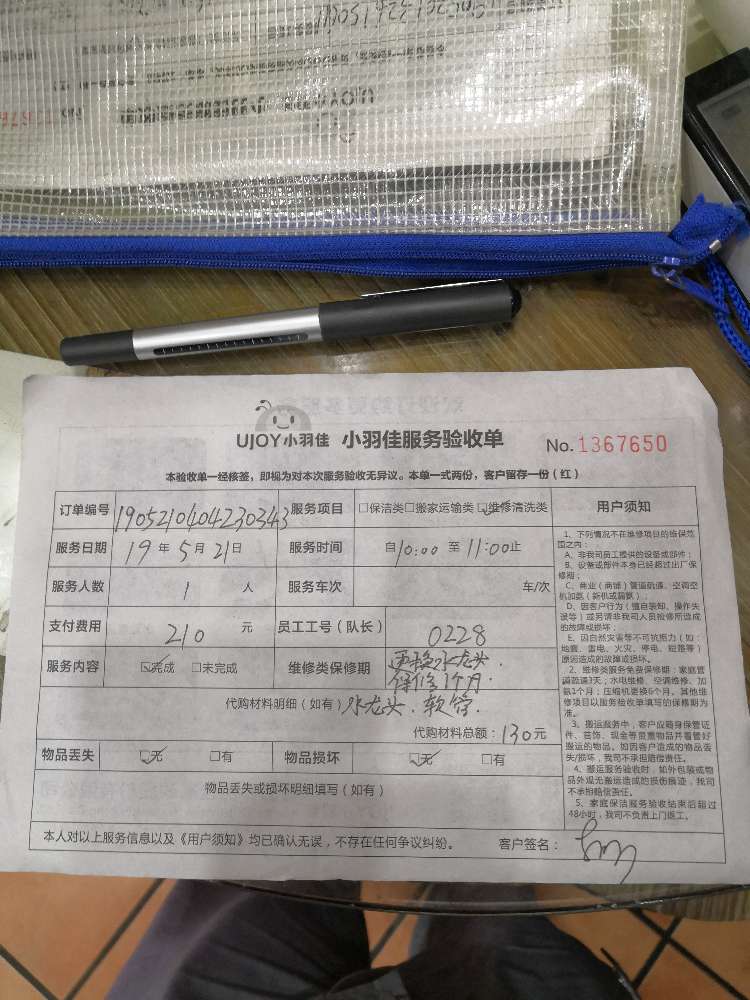 UJOY小羽佳 小羽佳服务验收单 No. 1367650
本验收单一经核签，即视为对本次服务验收无异议。本单一式两份，客户留存一份（红）
订单编号 1905210404230343 服务项目 □保洁类□搬家运输类☑维修清洗类 用户须知
服务日期 19年5月21日 服务时间 自10:00至11:00止
服务人数 1 人 服务车次 车/次
支付费用 210 元 员工工号（队长） 0228
服务内容 ☑完成 □未完成 维修类保修期 更换水龙头.
保修1个月.
代购材料明细（如有） 水龙头. 软管.
代购材料总额：130元
物品丢失 ☑无 □有 物品损坏 ☑无 □有
物品丢失或损坏明细填写（如有）
本人对以上服务信息以及《用户须知》均已确认无误，不存在任何争议纠纷。 客户签名：
1、下列情况不在维修项目的维保范
围之内：
A、非我司员工提供的设备或部件；
B、设备或部件本身已经超过出厂保
修期；
C、商业（商铺）管道疏通、空调空
机加氨（新机或漏氨）；
D、因客户行为（擅自装卸、操作失
误等）或另请非我司人员检修所造成
的故障或损坏；
E、因自然灾害等不可抗拒力（如：
地震、雷电、火灾、停电、短路等）
原因造成的故障或损坏。
2、维修类服务免费保修期：家庭管
道疏通3天；水电维修、空调维修、加
氨1个月；压缩机更换6个月。其他维
修项目以服务验收单填写的保修期为
准。
3、搬运服务中，客户应随身保管证
件、首饰、现金等贵重物品并看管好
搬运的物品。如因客户造成的物品丢
失/损坏，我司不承担赔偿责任。
4、搬运服务验收时，如外包装或物
品外观无搬运造成的损伤痕迹，我司
不承担赔偿责任。
5、家庭保洁服务验收结束后超过
48小时，我司不负责上门返工。